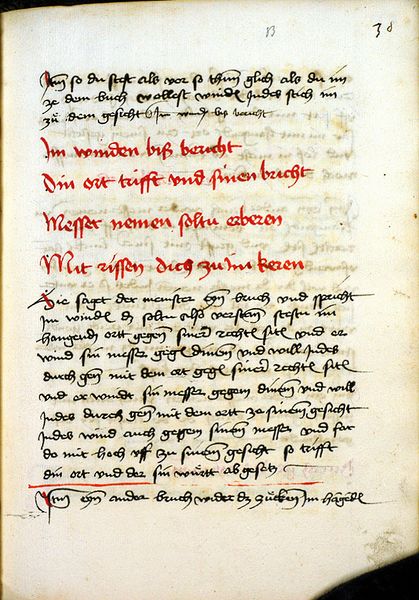 B 38
Itm so du stest als vor so thun glich als du im
ze dem buch wollest windē Indes stich im
zů dem gesicht
Im winden biß bericht
Din ort trifft vnd sinen bricht
Messer nemen soltu erberen
Mit rissen dich zu im keren
Hie saget der meinster eyn bruch vnd spricht
Im windē dz soltu also versten stestu im
hangendē ortt gegen siner rechtē sitē vnd er
wind sin messer gegē dinem vnd will Indes
durch gen mit dem ort gegē siner rechtē sitē
vnd er windt sin messer gegen dinem vnd will
Indes durch gen mit dem ortt ze sinem gesicht
Indes wind auch gegen sinem messer vnd far
do mit hoch vff zu sinem gesicht so trifft
din ort vnd der sin württ ab gesetz
Itm eyn ander bruch wider dz zucken Im hangedē